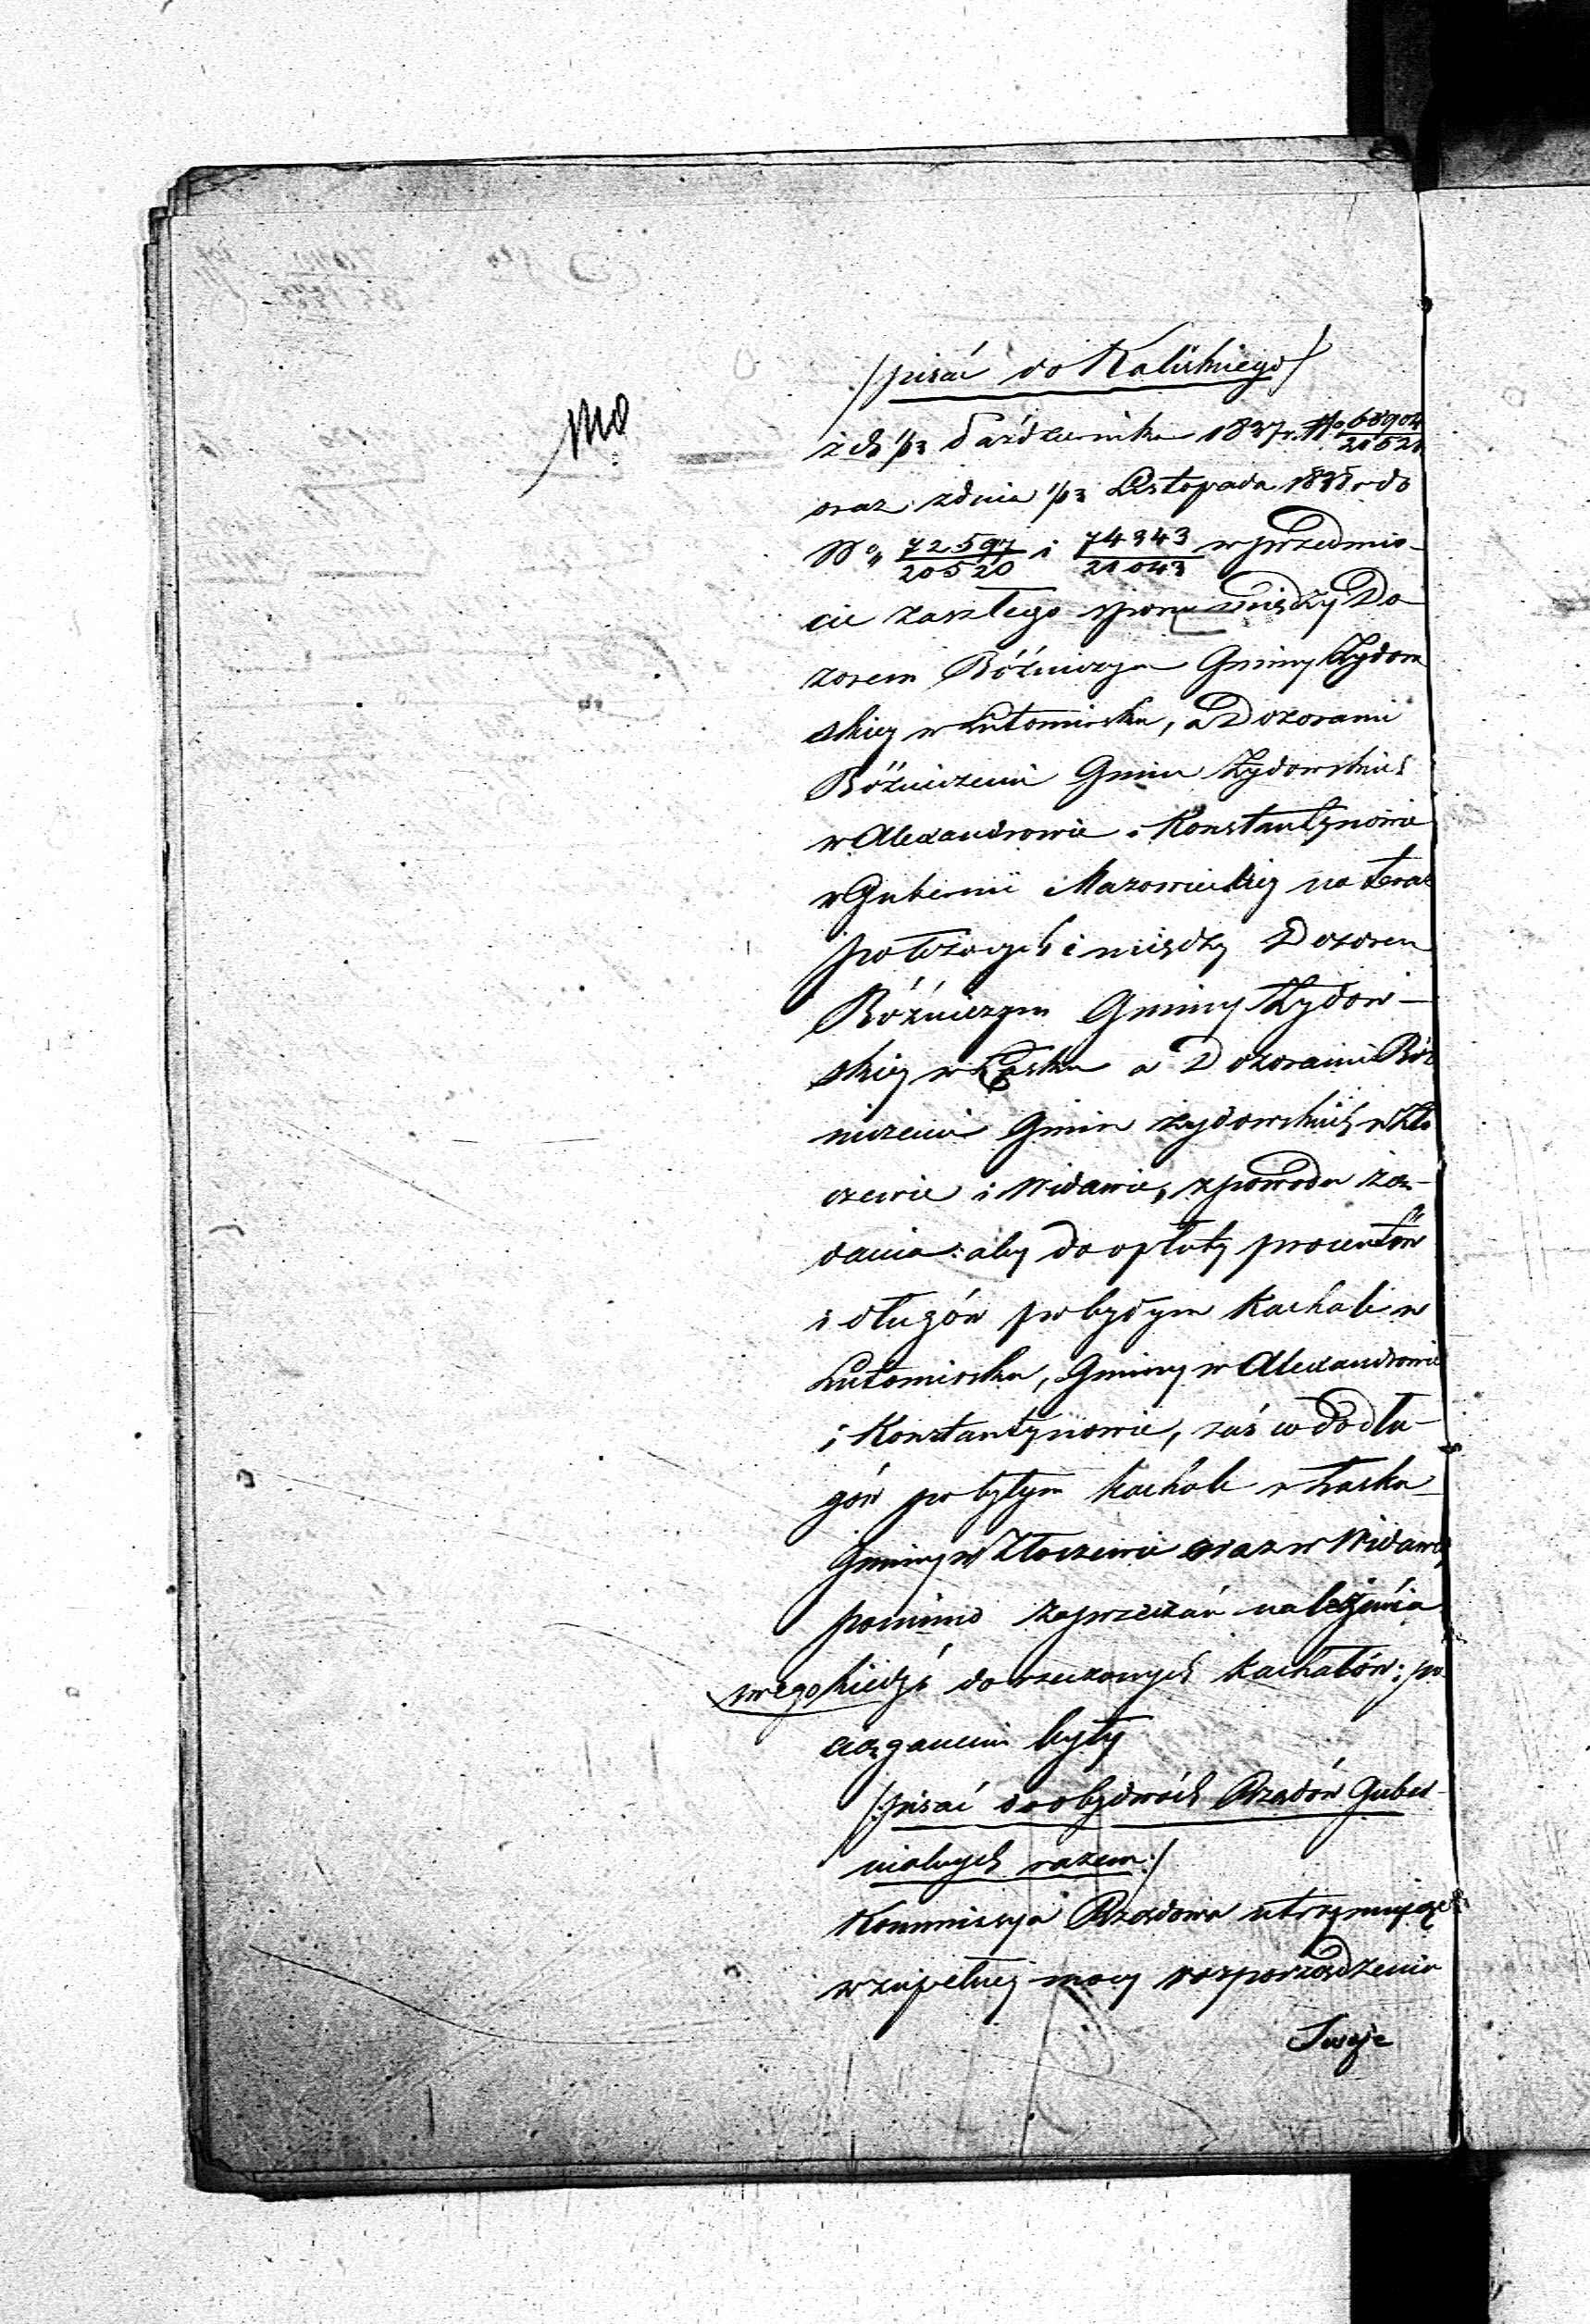 /pisać do Kaliskiego/
z d. 1/13 Października 1837 r. No 68904/21521
oraz z dnia 1/13 Listopada 1838 r. do
No 72597/20520 i 74343/21043 w przedmio-
cie zaszłego sporu między Do
zorem Bóźniczym Gminy Żydow
skiey w Lutomiersku, a Dozorami
Bóźniczemi Gmin Żydowskich
w Alexandrowie i Konstantynowie
w Gubernii Mazowieckiey na teraz
położonych i między Dozorem
Bóźniczym Gminy Żydow-
skiey w Łasku a Dozorami Bóż
niczemi Gmin żydowskich w Zło
czewie i Widawie, z powodu żą-
dania: aby do opłaty procentów
i długów po byłym Kachale w
Lutomiersku, Gminy w Alexandrowie
i Konstantynowie, zaś co do dłu-
gów po byłym kachale w Łasku
Gminy w Złoczewie oraz w Widawie
pomimo zaprzeczań należenia
swego kiedyś do rzeczonych kachałów; po
ciąganemi były
/:pisać do obydwóch Rządów Guber-
nialnych razem:/
Kommissya Rządowa utrzymując
w zupełney mocy rozporządzenia
Swoje